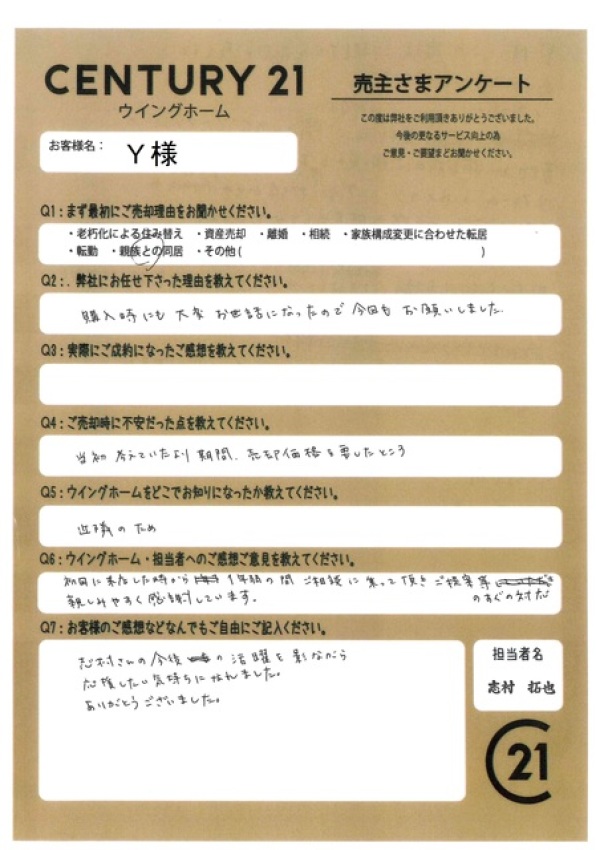 CENTURY 21
ウイングホーム
売主さまアンケート
この度は弊社をご利用頂きありがとうございました。
今後の更なるサービス向上の為
ご意見・ご要望をお聞かせください。
お客様名： Y様
Q1：まず最初にご売却理由をお聞かせください。
・老朽化による住み替え ・資産売却 ・離婚 ・相続 ・家族構成変更に合わせた転居
・転勤 ・親族との同居 ・その他（ ）
Q2：．弊社にお任せ下さった理由を教えてください。
購入時にも大変お世話になったので今回もお願いしました
Q3：実際にご成約になったご感想を教えてください。
Q4：ご売却時に不安だった点を教えてください。
当初考えていたより期間、売却価格を要したところ
Q5：ウイングホームをどこでお知りになったか教えてください。
近隣のため
Q6：ウイングホーム・担当者へのご感想ご意見を教えてください。
初回に来店した時から 1年弱の間ご相談に乗って頂きご提案等
のすぐの対応
親しみやすく感謝しています。
Q7：お客様のご感想などなんでもご自由にご記入ください。
志村さんの今後の活躍を影ながら
応援したい気持ちになれました。
ありがとうございました。
担当者名
志村 拓也
C21